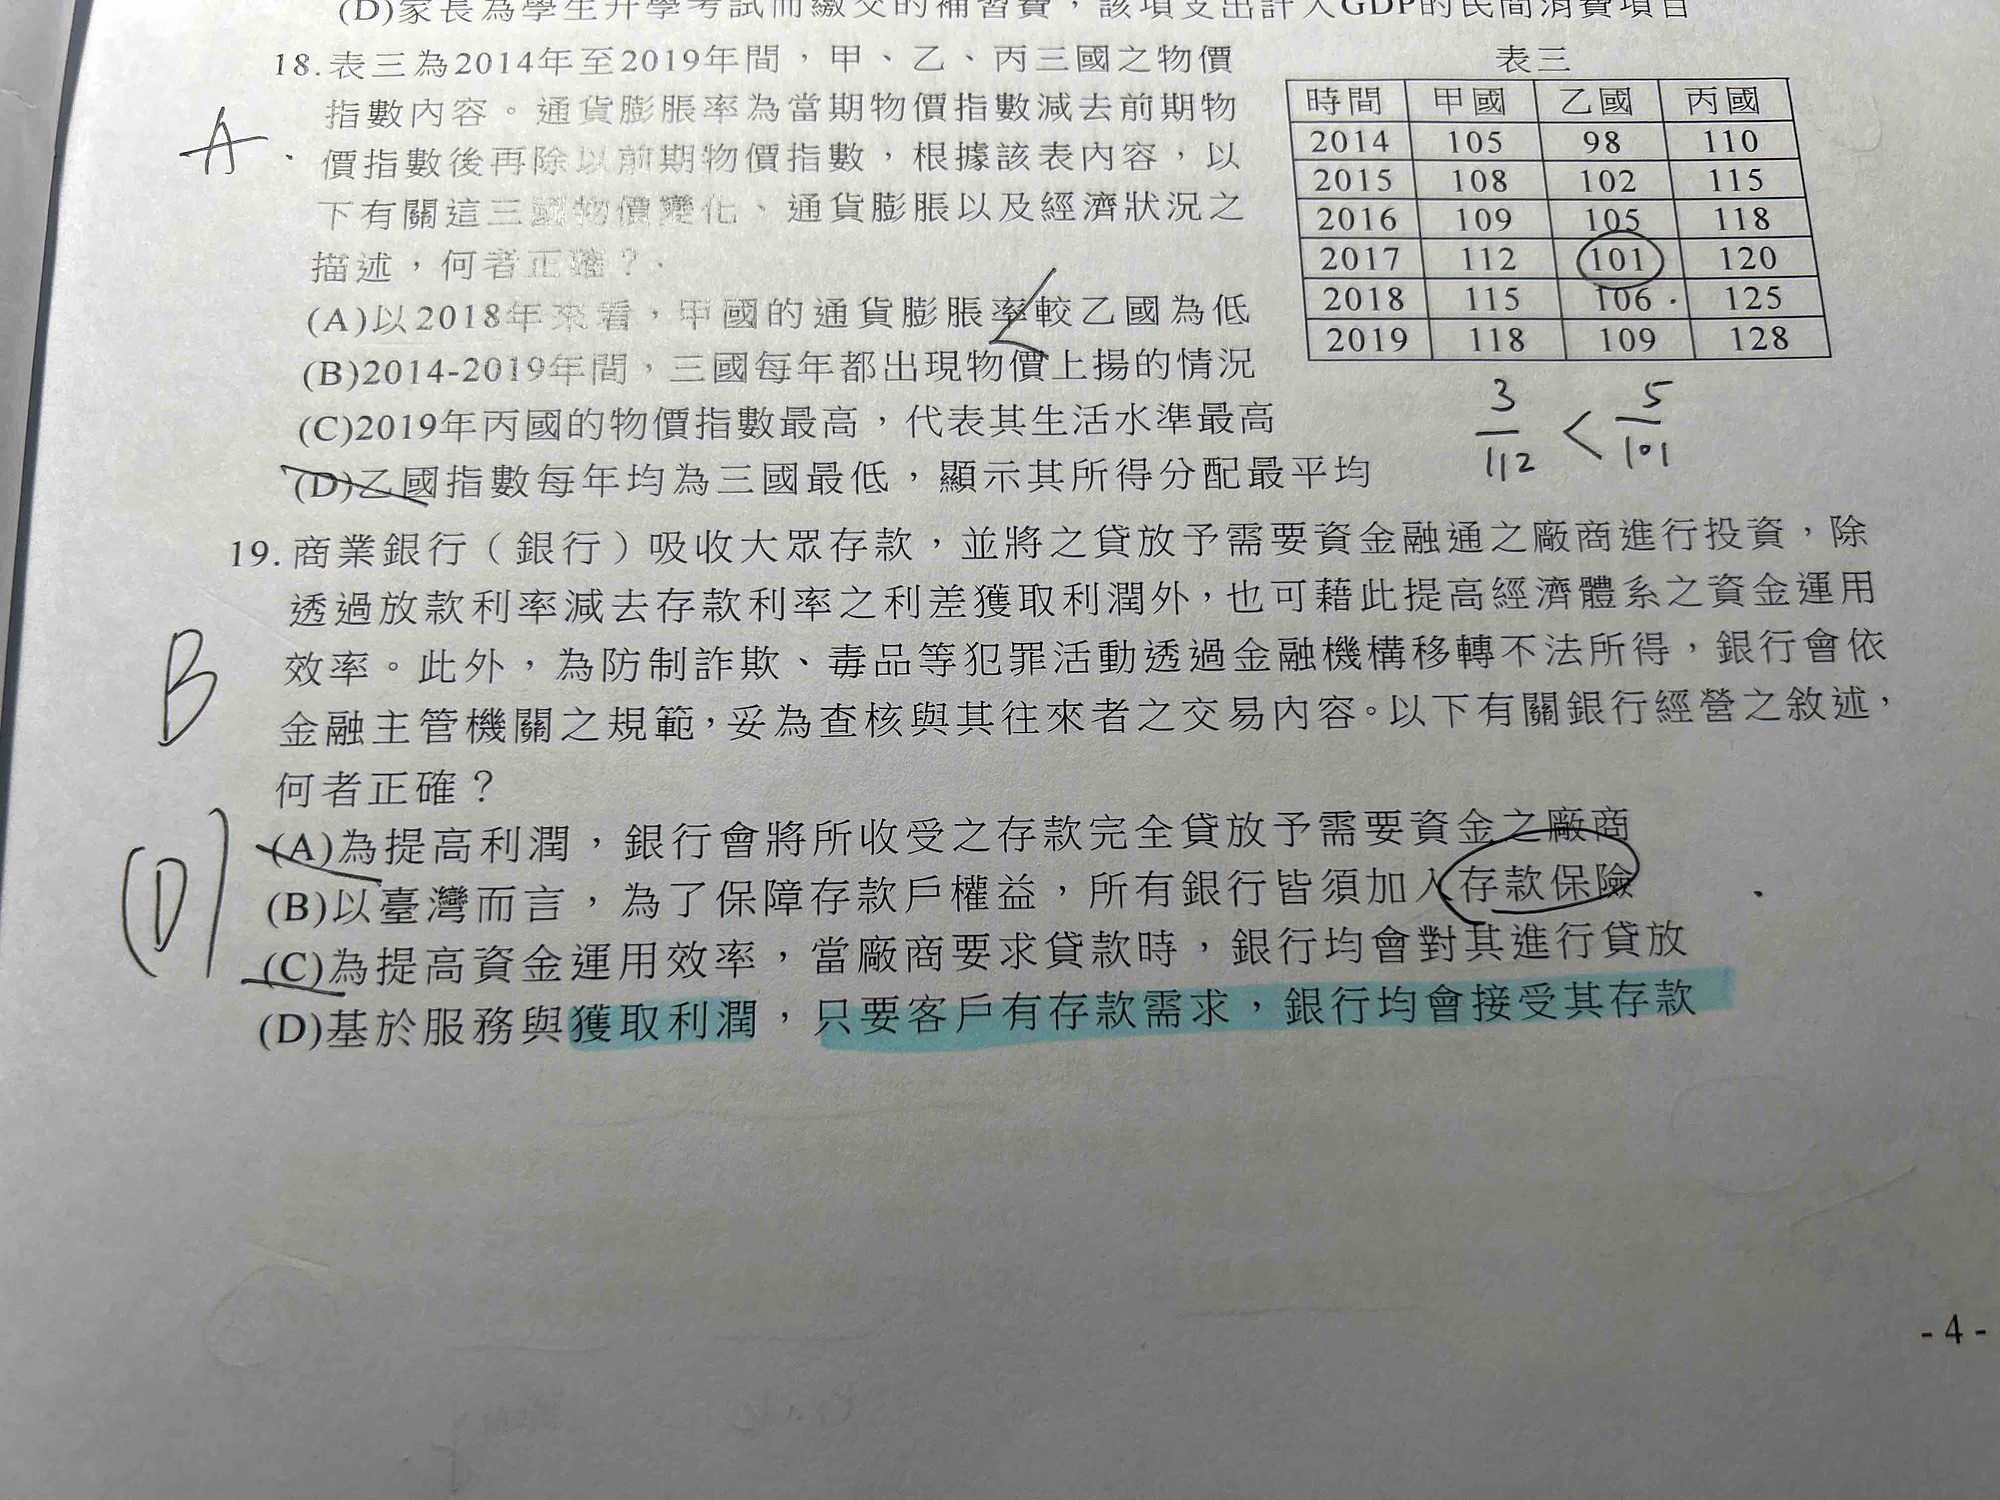 (D)家長為學生升學考試而繳交的補習費，該項支出計入GDP的民間消費項目
18.表三為2014年至2019年間，甲、乙、丙三國之物價
指數內容。通貨膨脹率為當期物價指數減去前期物
價指數後再除以前期物價指數，根據該表內容，以
下有關這三國物價變化、通貨膨脹以及經濟狀況之
描述，何者正確？
A
(A)以2018年來看，甲國的通貨膨脹率較乙國為低
<
(B)2014-2019年間，三國每年都出現物價上揚的情況
(C)2019年丙國的物價指數最高，代表其生活水準最高
(D)乙國指數每年均為三國最低，顯示其所得分配最平均
表三
時間 甲國 乙國 丙國
2014 105 98 110
2015 108 102 115
2016 109 105 118
2017 112 101 120
2018 115 106 125
2019 118 109 128
3/112 < 5/101
19.商業銀行（銀行）吸收大眾存款，並將之貸放予需要資金融通之廠商進行投資，除
透過放款利率減去存款利率之利差獲取利潤外，也可藉此提高經濟體系之資金運用
效率。此外，為防制詐欺、毒品等犯罪活動透過金融機構移轉不法所得，銀行會依
金融主管機關之規範，妥為查核與其往來者之交易內容。以下有關銀行經營之敘述，
何者正確？
B
(D)
(A)為提高利潤，銀行會將所收受之存款完全貸放予需要資金之廠商
(B)以臺灣而言，為了保障存款戶權益，所有銀行皆須加入存款保險
(C)為提高資金運用效率，當廠商要求貸款時，銀行均會對其進行貸放
(D)基於服務與獲取利潤，只要客戶有存款需求，銀行均會接受其存款
- 4 -